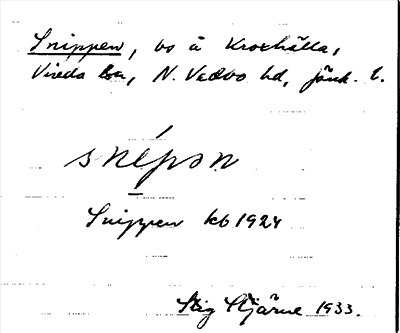 Snippen, bs å Kroxhälla,
Vireda sn, N. Vedbo hd, Jönk. l.
snépən
Snippen kb 1924
Stig Stjärne 1933.